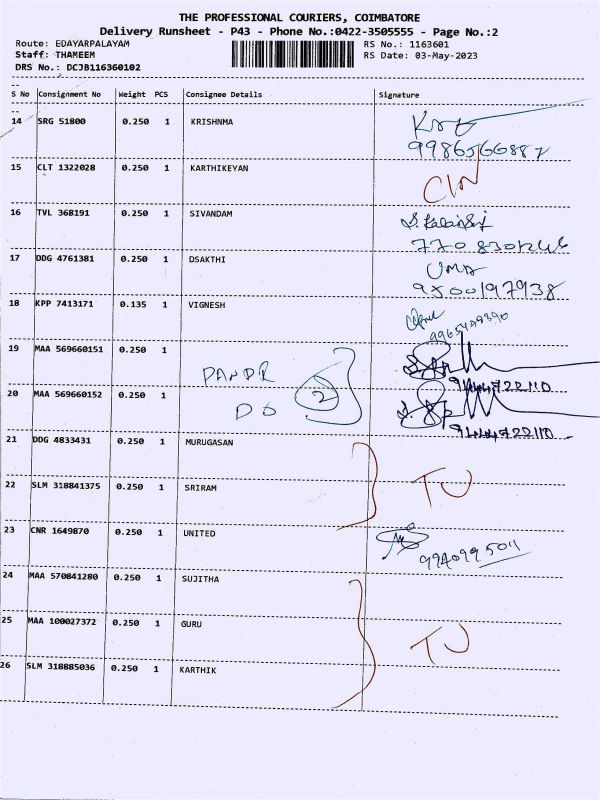 THE PROFESSIONAL COURIERS, COIMBATORE
Delivery Runsheet - P43 - Phone No.:0422-3505555 - Page No.:2
Route: EDAYARPALAYAM
Staff: THAMEEM
DRS No.: DCJB116360102
RS No.: 1163601
RS Date: 03-May-2023
S No Consignment No Weight PCS Consignee Details Signature
14 SRG 51800 0.250 1 KRISHNMA
15 CLT 1322028 0.250 1 KARTHIKEYAN
16 TVL 368191 0.250 1 SIVANDAM
17 DDG 4761381 0.250 1 DSAKTHI
UMA
18 KPP 7413171 0.135 1 VIGNESH
19 MAA 569660151 0.250 1
PANDR
9444722110
20 MAA 569660152 0.250 1
DO 2
9444722110
21 DDG 4833431 0.250 1 MURUGASAN
22 SLM 318841375 0.250 1 SRIRAM
TJ
23 CNR 1649870 0.250 1 UNITED
9940995011
24 MAA 570841280 0.250 1 SUJITHA
25 MAA 100027372 0.250 1 GURU
TJ
26 SLM 318885036 0.250 1 KARTHIK